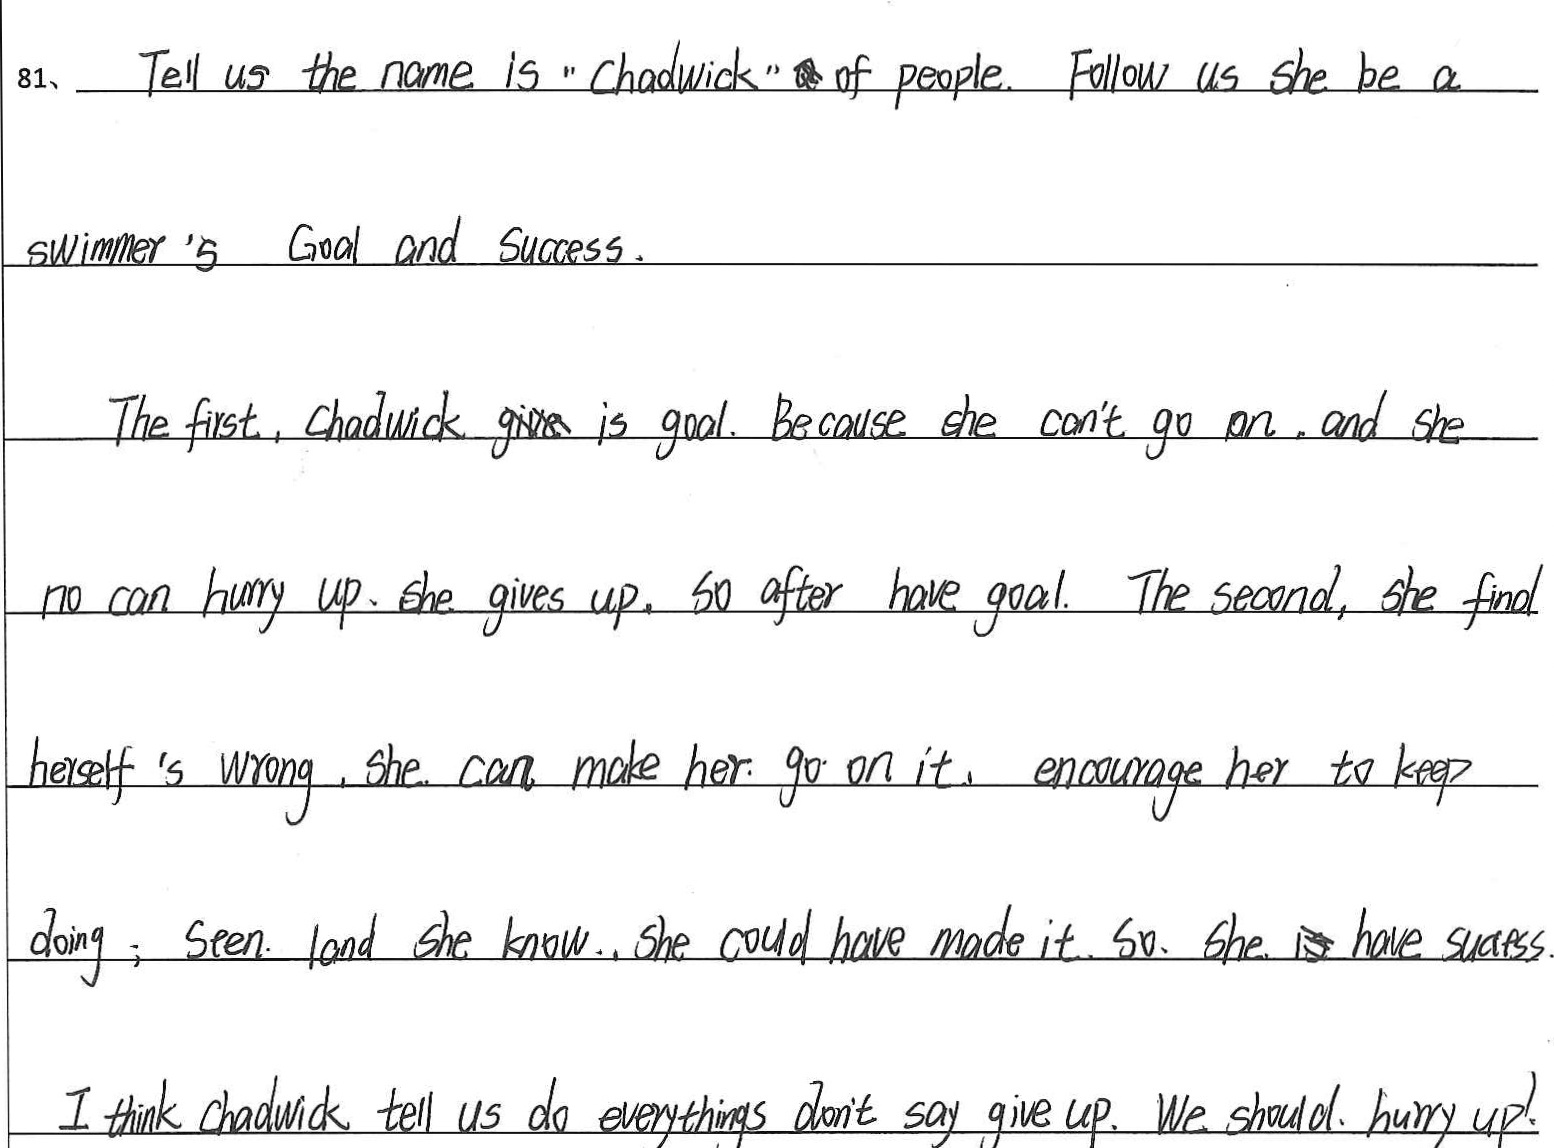 81、 Tell us the name is "Chadwick" of people. Follow us she be a
swimmer's Goal and Success.
The first, Chadwick is goal. Because she can't go on. and she
no can hurry up. she gives up. So after have goal. The second, she find
herself's wrong, she can make her go on it, encourage her to keep
doing; Seen land she know., she could have made it. So. She have success.
I think Chadwick tell us do everythings don't say give up. We should. hurry up!